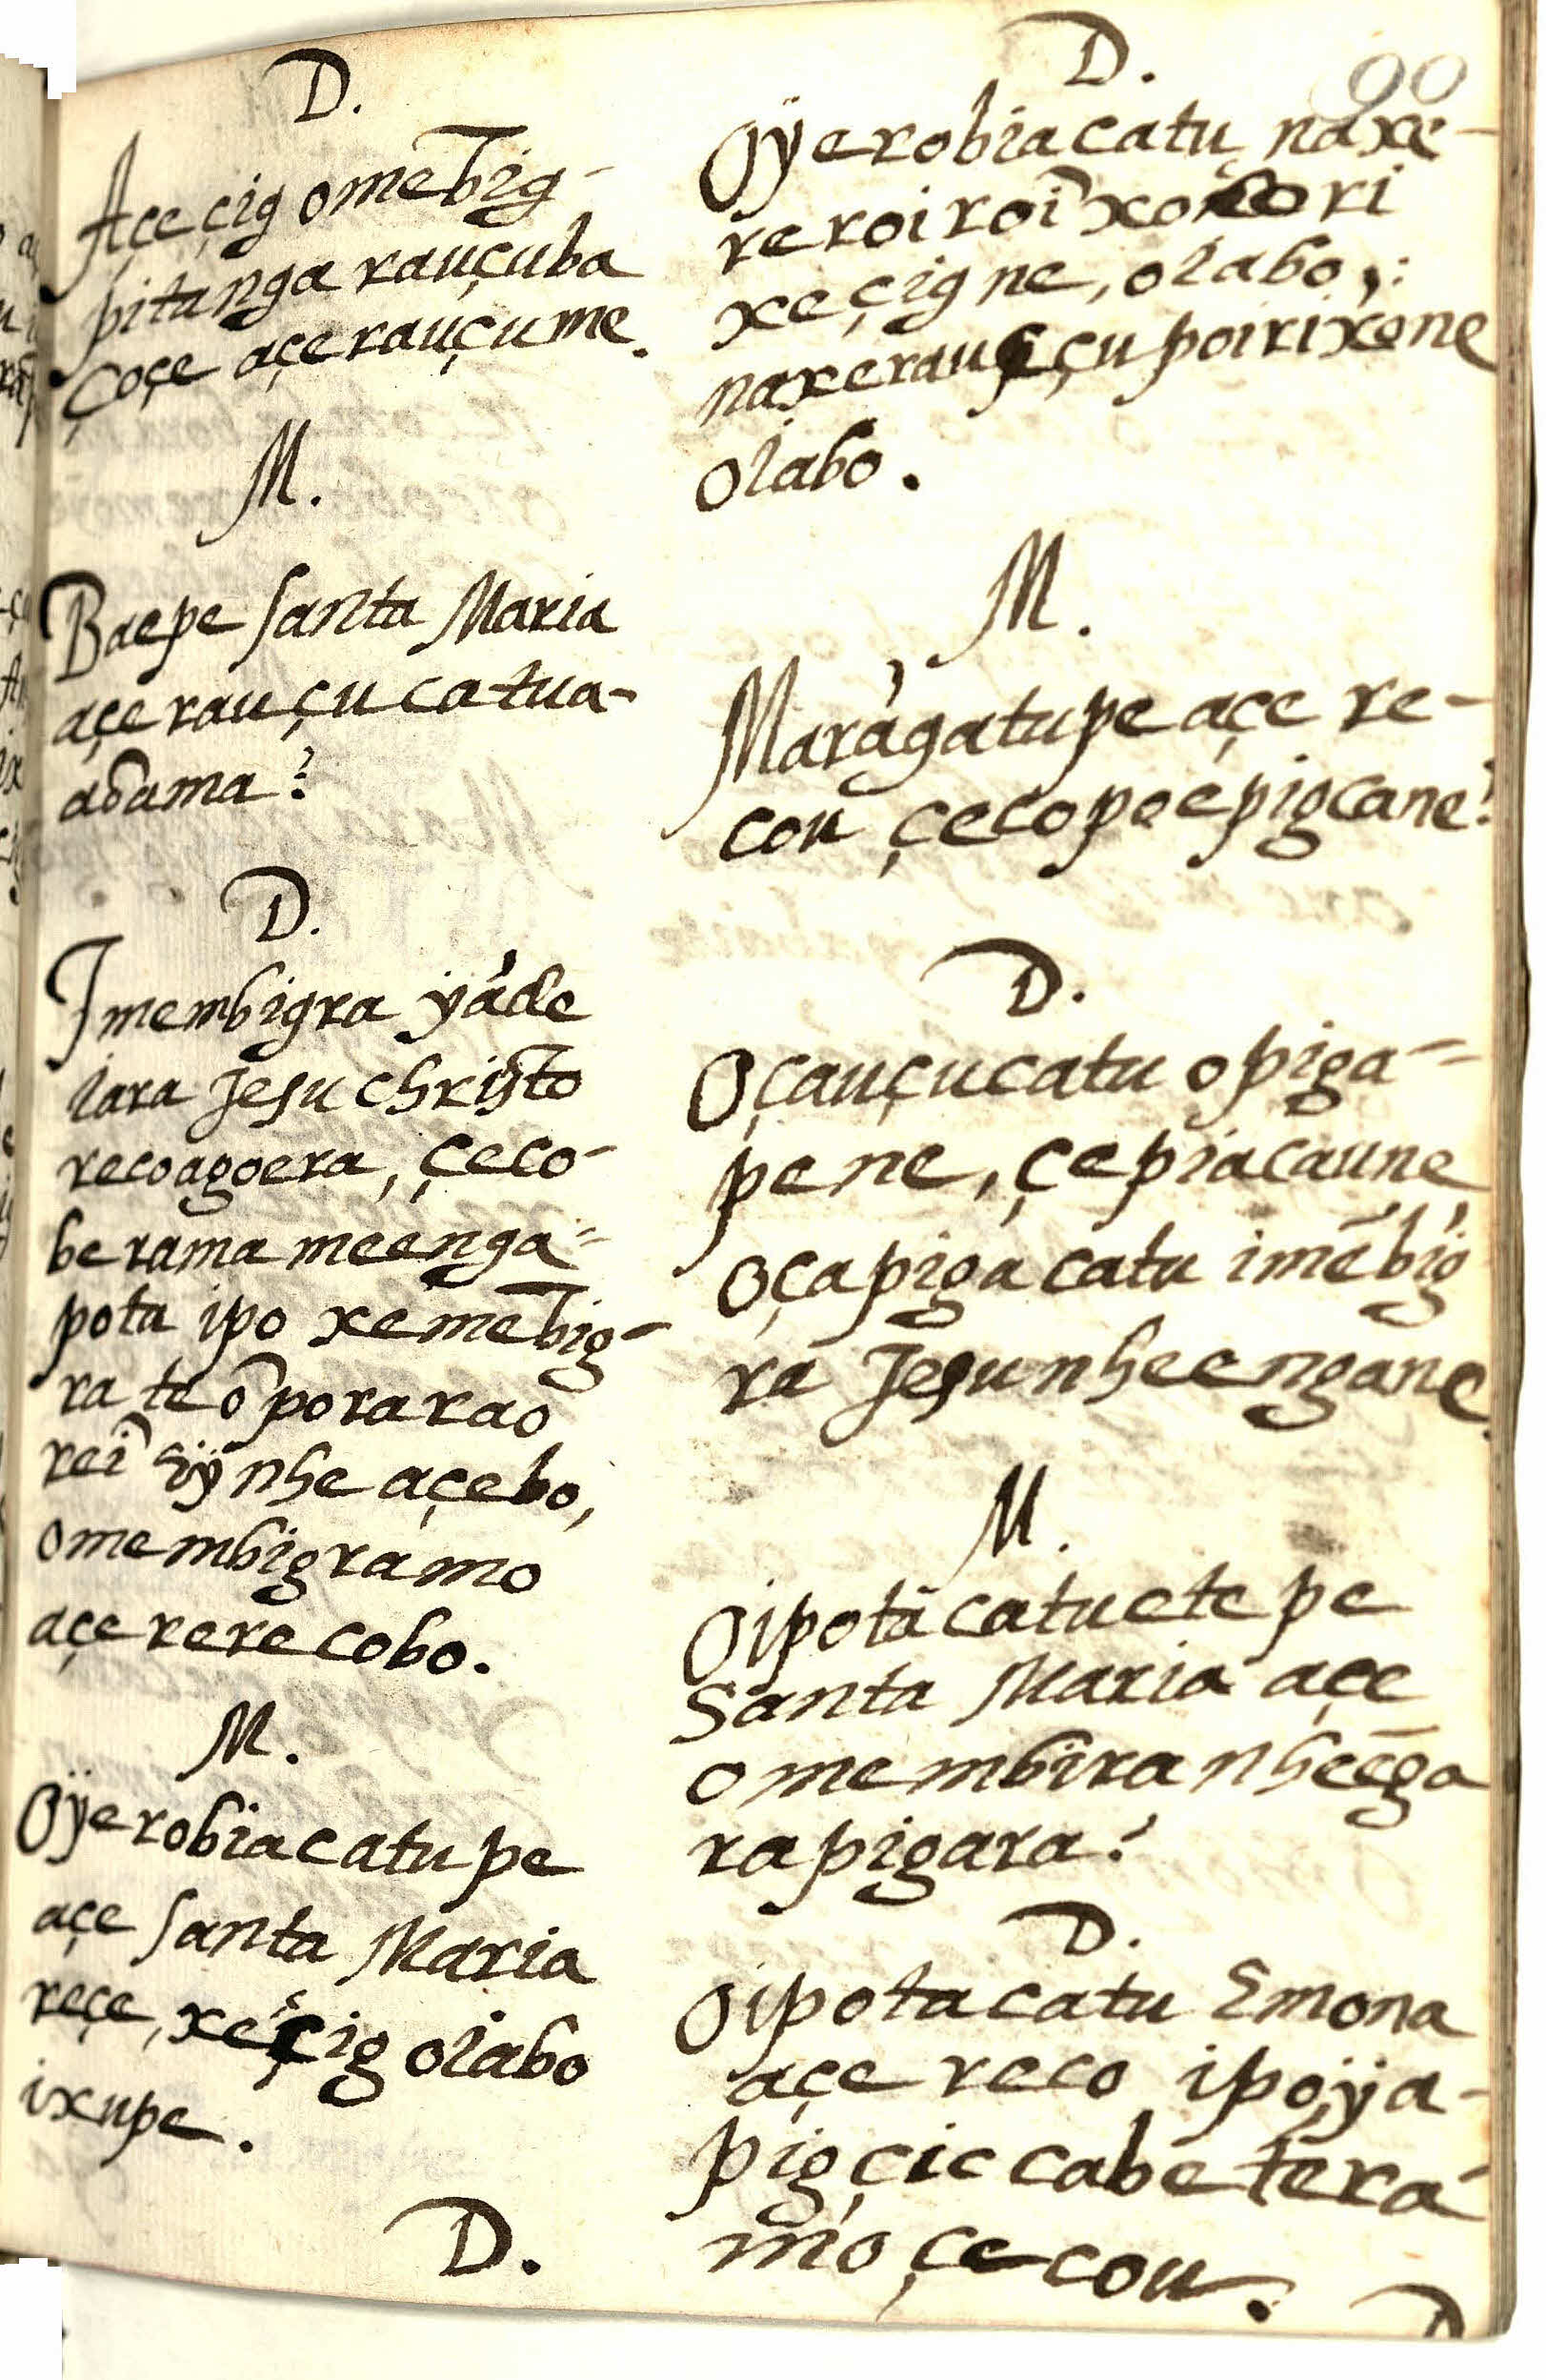 D.
Açe çig omebig-
pitanga rauçuba
çoçe açe rauçume.
M.
Baepe santa Maria
açe rauçu catua-
aõama?
D.
Imembigra ÿáde
iara Jesu christo
recoagoera, çeco-
be rama meenga=
pota ipo xe mēbig-
ra te õ porarao
rei sÿ nhe açebo,
omembigramo
açe rere cobo.
M.
Oÿerobia catu pe
açe santa Maria
reçe, xe çig olabo
ixupe.
D.
D.
90
Oÿerobia catu naxe-
re roi roĩ xo ori
xe çig ne, olabo,:
naxerau çupoirixone
olabo.
M.
Marãgatupe açe re-
cou çecopoepigcane?
D.
Oçauçucatu opiga=
pene, çepiacaune,
oçapiga catu imēbig
ra Jesu nheengane.
M.
Oipotacatuete pe
Santa Maria açe
omembira nheēga
rapigara?
D.
Oipotacatu Emona
açe reco ipoÿa-
pigçic cabe tera-
mo çecou.
D